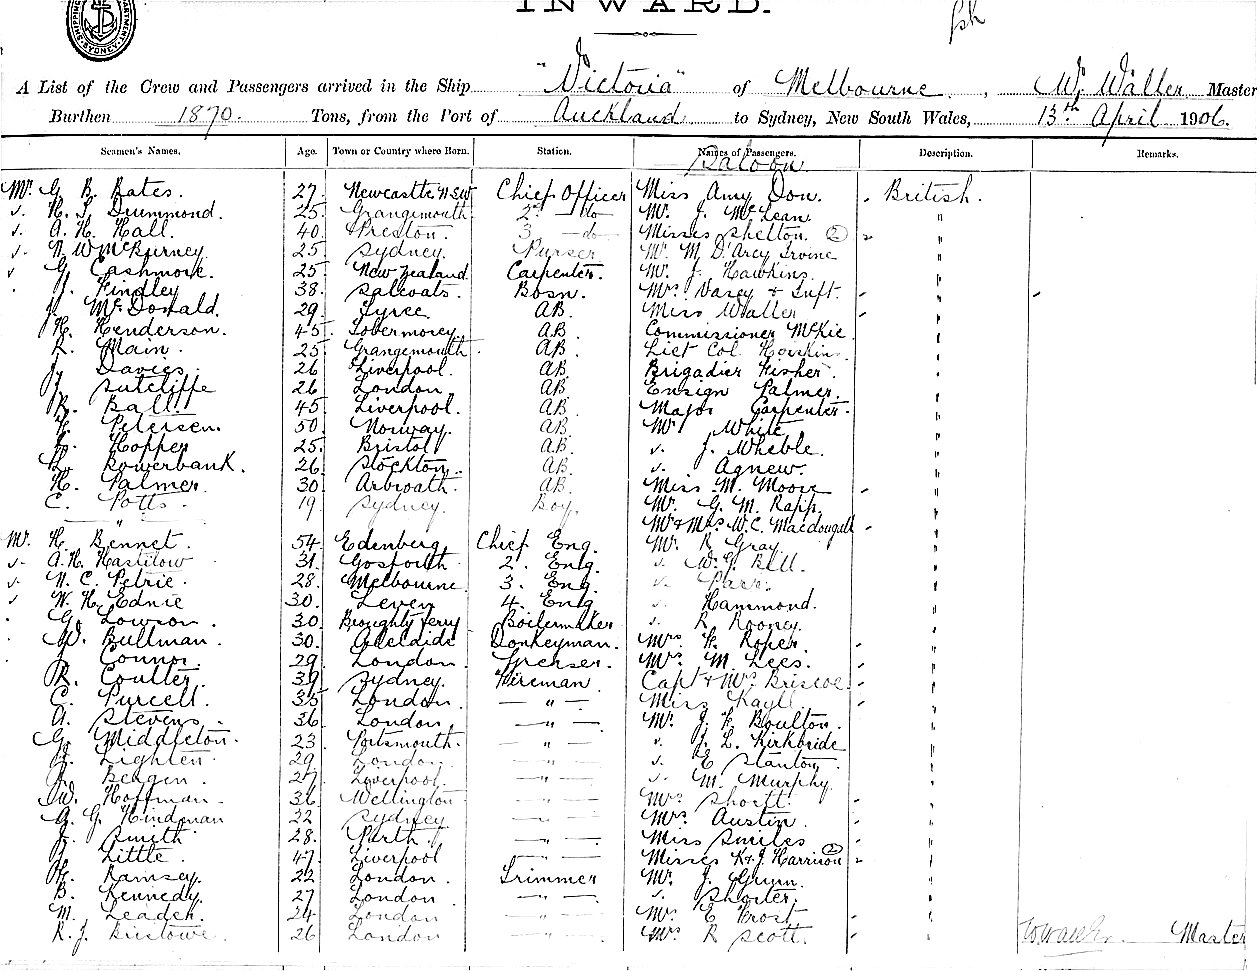 INWARD.
SHIPPING SYDNEY
A List of the Crew and Passengers arrived in the Ship "Victoria" of Melbourne, W. Waller Master
Burthen 1870. Tons, from the Port of Auckland to Sydney, New South Wales, 13th April 1906.
Seamen's Names. Age. Town or Country where Born. Station. Names of Passengers. Description. Remarks.
Saloon
Mr. G B Bates. 27 Newcastle NSW Chief Officer Miss Amy Don. British.
H. S Drummond. 25 Grangemouth 2d — do Mr. J. McLean "
A. H. Hall. 40 Preston. 3 — do Misses Shelton. (2) "
N. W McBurney 25 Sydney. Purser Mr. M D'Arcy Irvine "
G. Cashmore. 25 New Zealand Carpenter. Mr. J. Hawkins. "
J. Findley 38 Salcoats. Bosn. Mrs Varey & Inft. "
J. McDonald. 29 Tyree. AB. Miss Waller "
H. Henderson. 45 Tobermorey AB. Commissioner McKie "
R. Main. 25 Grangemouth AB. Liet Col. Hoskins. "
J. Davies. 26 Liverpool. AB. Brigadier Fisher "
J. Sutcliffe 26 London. AB. Ensign Palmer. "
R. Ball. 45 Liverpool. AB. Major Carpenter. "
Petersen. 50 Norway. AB. Mr White "
Hopper 25 Bristol AB. J. Wheble. "
Bowerbank. 26 Stockton. AB. Agnew. "
H. Palmer. 30 Arbroath. AB. Miss M. Moore "
C. Potts. 19 Sydney. Boy. Mr. G. M. Rapp. "
— " — Mr & Mrs W. C. Macdougall "
Mr. H. Bennet. 54 Edenberg. Chief Eng. Mr. R Gray. "
A. H. Hastilow 31 Gosforth 2. Eng. W. J. Bell. "
N. C. Petrie. 28. Melbourne 3. Eng. Park. "
W. H. Ednie 30. Leven 4. Eng Hammond. "
G. Lowson. 30 Broughty Ferry Boilermaker R Rooney. "
W. Bullman. 30. Adelaide Donkeyman. Mrs F. Roper. "
J Connor. 29 London. Greaser. Mrs. M. Lees. "
R. Coulter. 39 Sydney. Fireman. Capt & Mrs Briscoe. "
C. Purcell. 35 London. — " — Miss Kayll "
A. Stevens. 36 London. — " — Mr. J. F. Boulton. "
G. Middleton. 23 Portsmouth. — " — J. L. Kirkbride "
Lighten. 29 London. — " — E Stanton. "
J. Beagen. 27 Liverpool. — " — M. Murphy. "
W. Hoffman. 31 Wellington — " — Mrs Shortt. "
A. G. Hindman 22 Sydney — " — Mrs Austin. "
J. Smith 28. Perth. — " — Miss Smiles "
Little. 47 Liverpool — " — Misses K & J Harrison (2) "
Ramsey. 22 London. Trimmer Mr. J. "
B. Kennedy. 27 London. — " — Shorter. "
M. Leader. 24 London — " — Mrs E Frost "
R. J. Bristowe. 26 London — " — Mrs R Scott. " Master